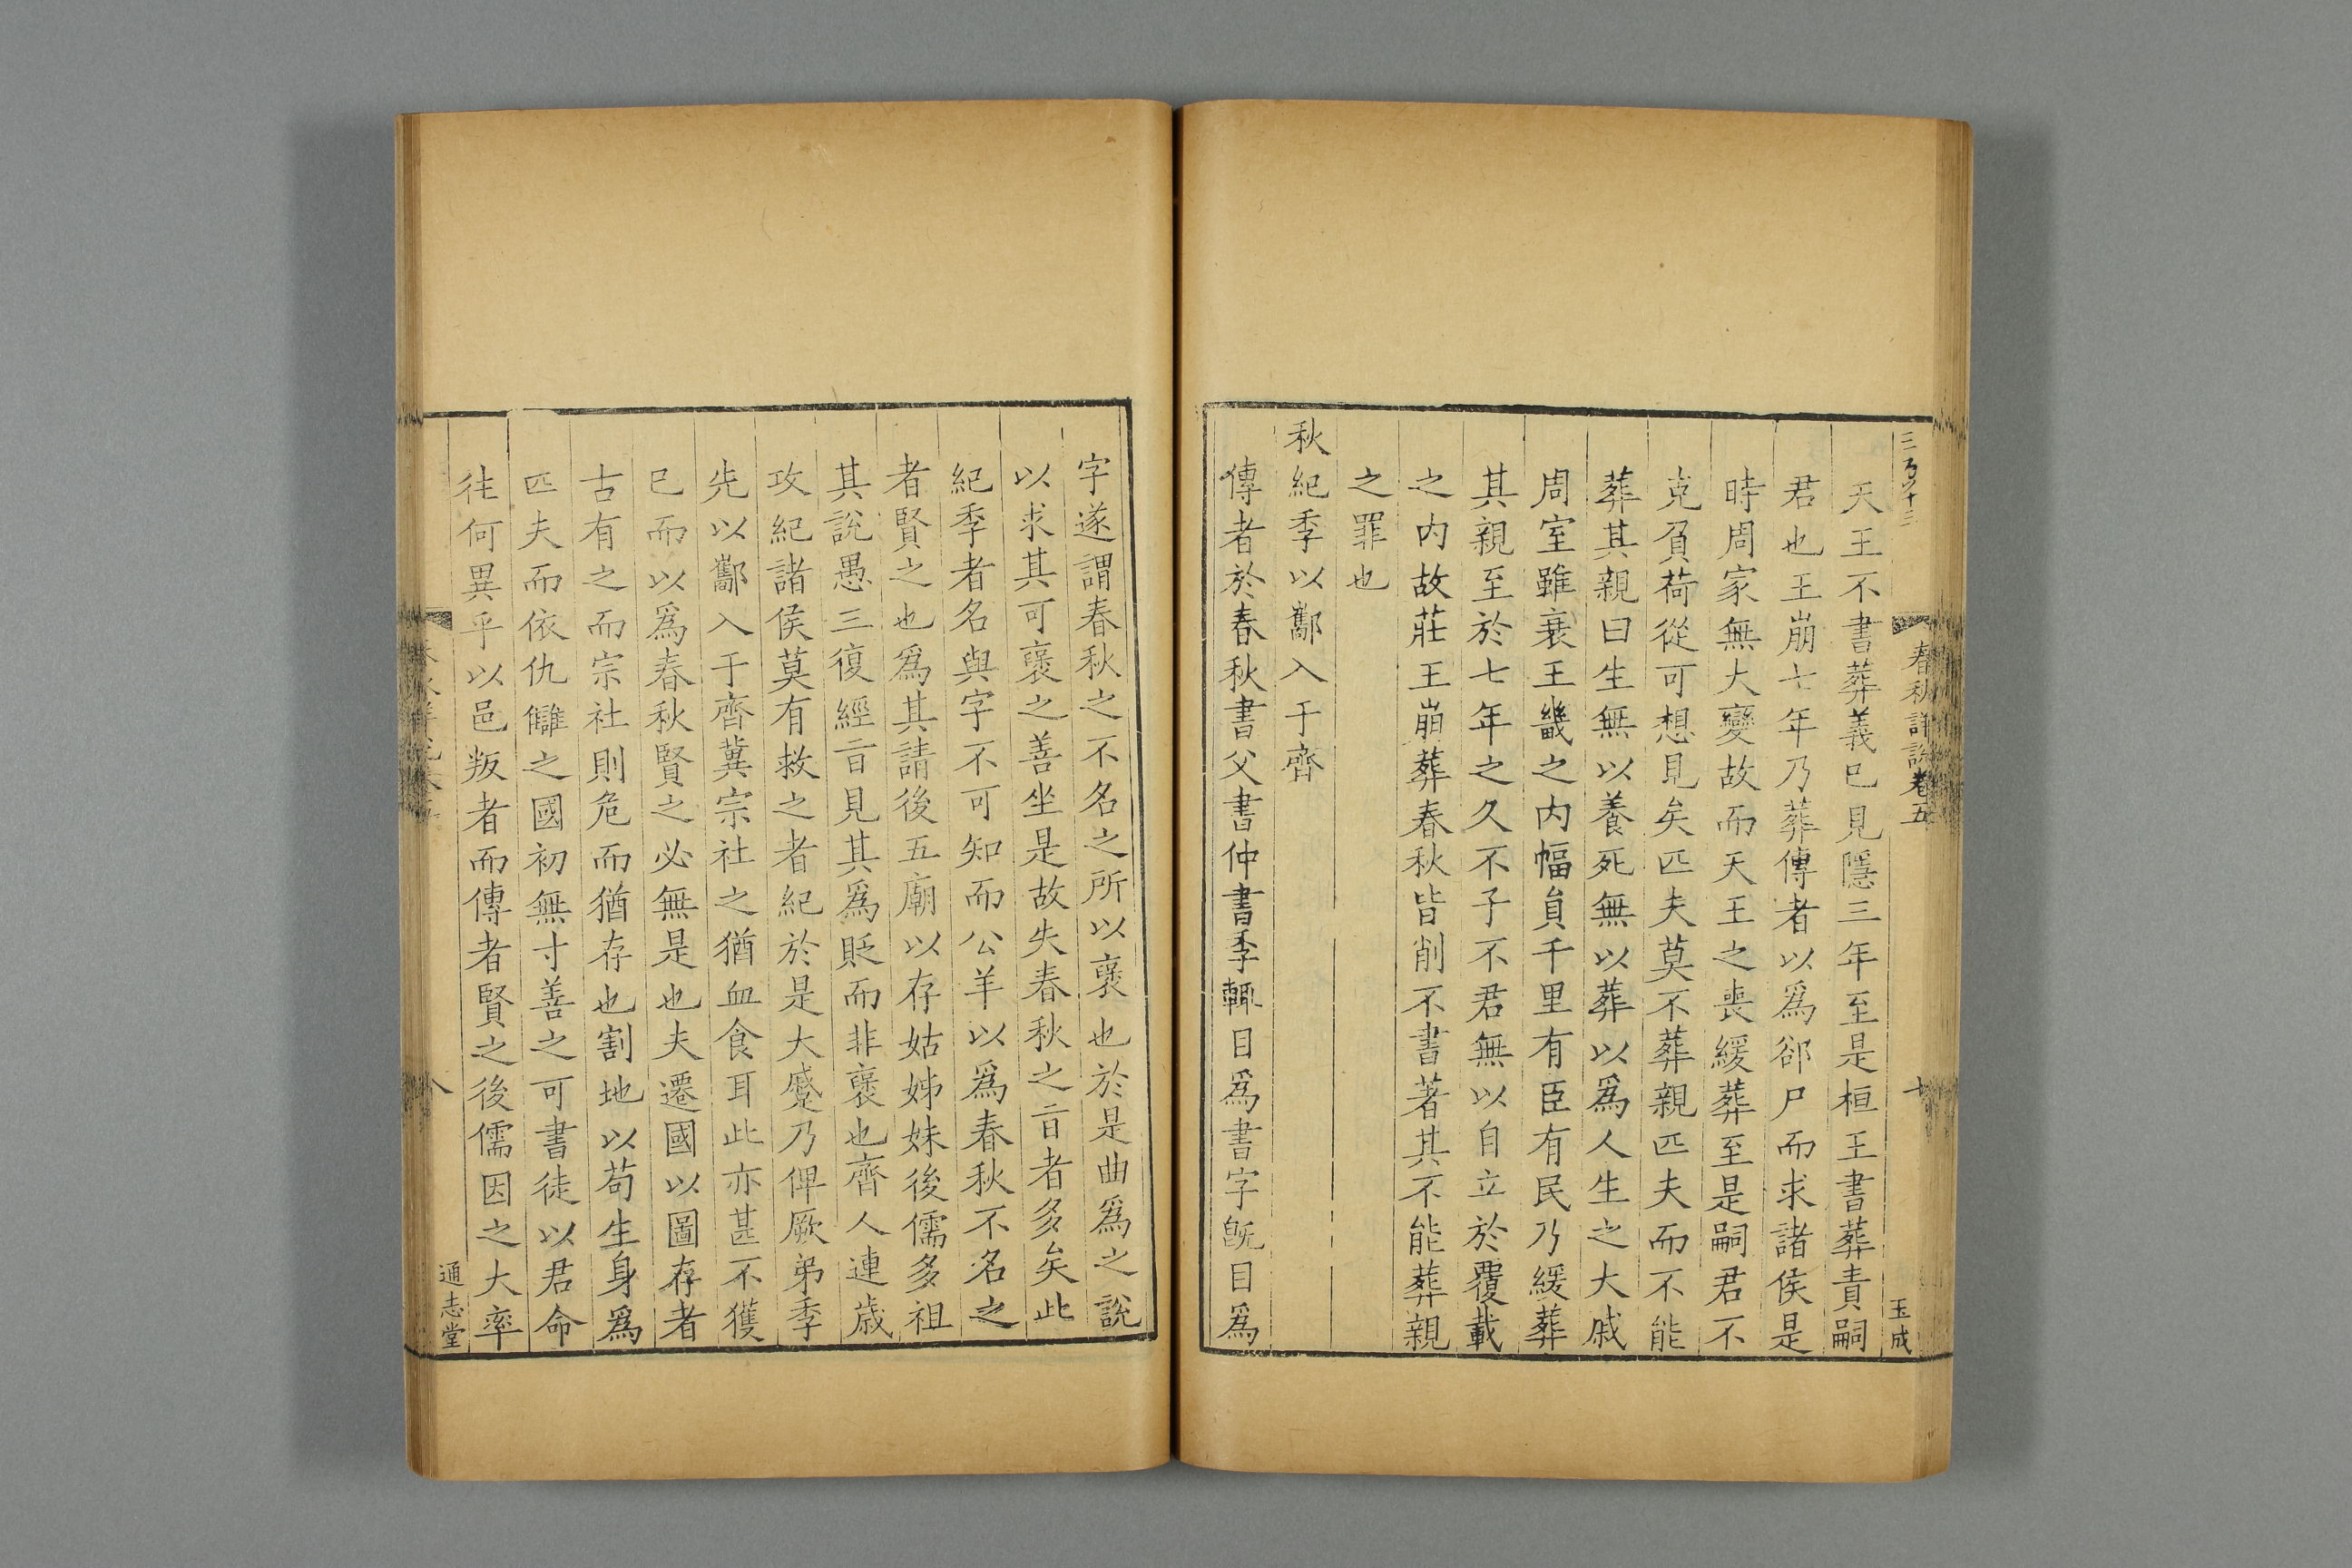 春秋詳說卷五
玉成
天王不書葬義已見隱三年至是桓王書葬責嗣
君也王崩七年乃葬傳者以爲郤尸而求諸侯是
時周家無大變故而天王之喪緩葬至是嗣君不
克負荷從可想見矣匹夫莫不葬親匹夫而不能
葬其親曰生無以養死無以葬以爲人生之大戚
周室雖衰王畿之内幅員千里有臣有民乃緩葬
其親至於七年之久不子不君無以自立於覆載
之内故莊王崩葬春秋皆削不書著其不能葬親
之罪也
秋紀季以酅入于齊
傳者於春秋書父書仲書季輒目爲書字旣目爲
字遂謂春秋之不名之所以襃也於是曲爲之說
以求其可襃之善坐是故失春秋之㫖者多矣此
紀季者名與字不可知而公羊以爲春秋不名之
者賢之也爲其請後五廟以存姑姊妹後儒多祖
其說愚三復經㫖見其爲貶而非襃也齊人連歲
攻紀諸侯莫有救之者紀於是大蹙乃俾厥弟季
先以酅入于齊冀宗社之猶血食耳此亦甚不獲
已而以爲春秋賢之必無是也夫遷國以圖存者
古有之而宗社則危而猶存也割地以苟生身爲
匹夫而依仇讎之國初無寸善之可書徒以君命
徃何異乎以邑叛者而傳者賢之後儒因之大率
八
通志堂